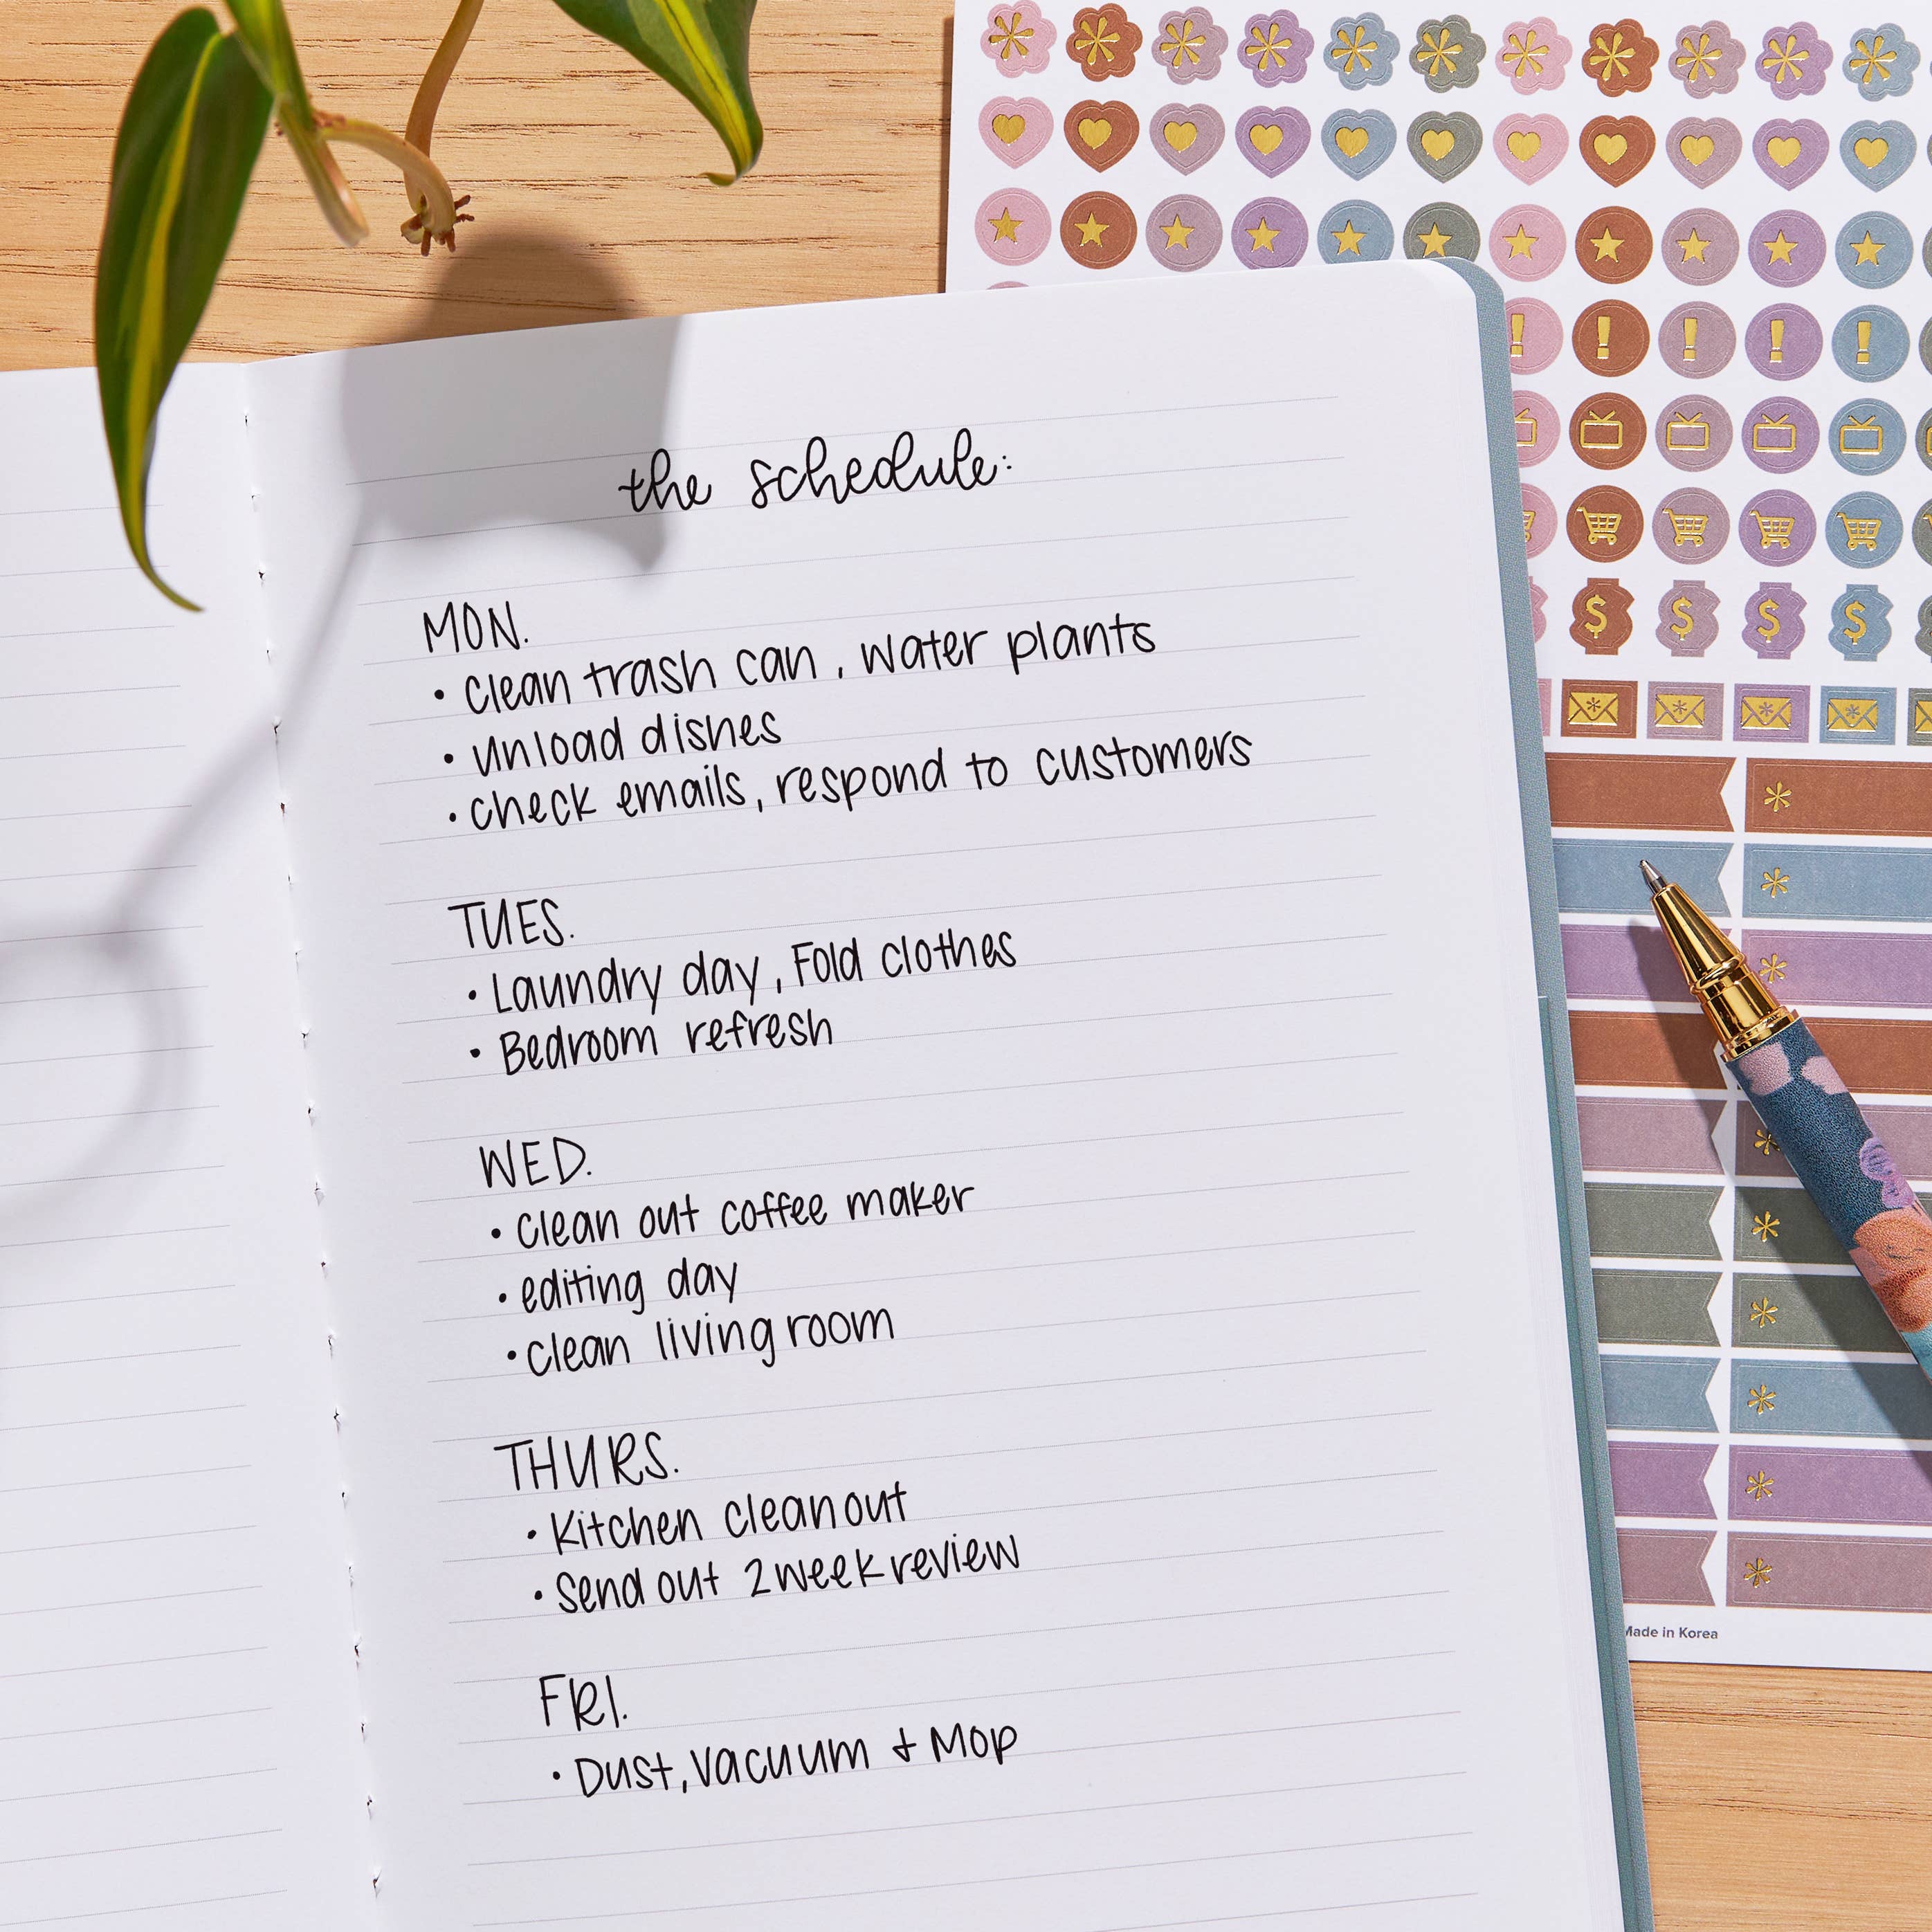 the schedule:
MON.
• clean trash can, water plants
• unload dishes
• check emails, respond to customers
TUES.
• Laundry day, Fold clothes
• Bedroom refresh
WED.
• clean out coffee maker
• editing day
• clean living room
THURS.
• Kitchen clean out
• Send out 2 week review
FRI.
• Dust, Vacuum + Mop
! ! ! ! !
$ $ $ $
Made in Korea